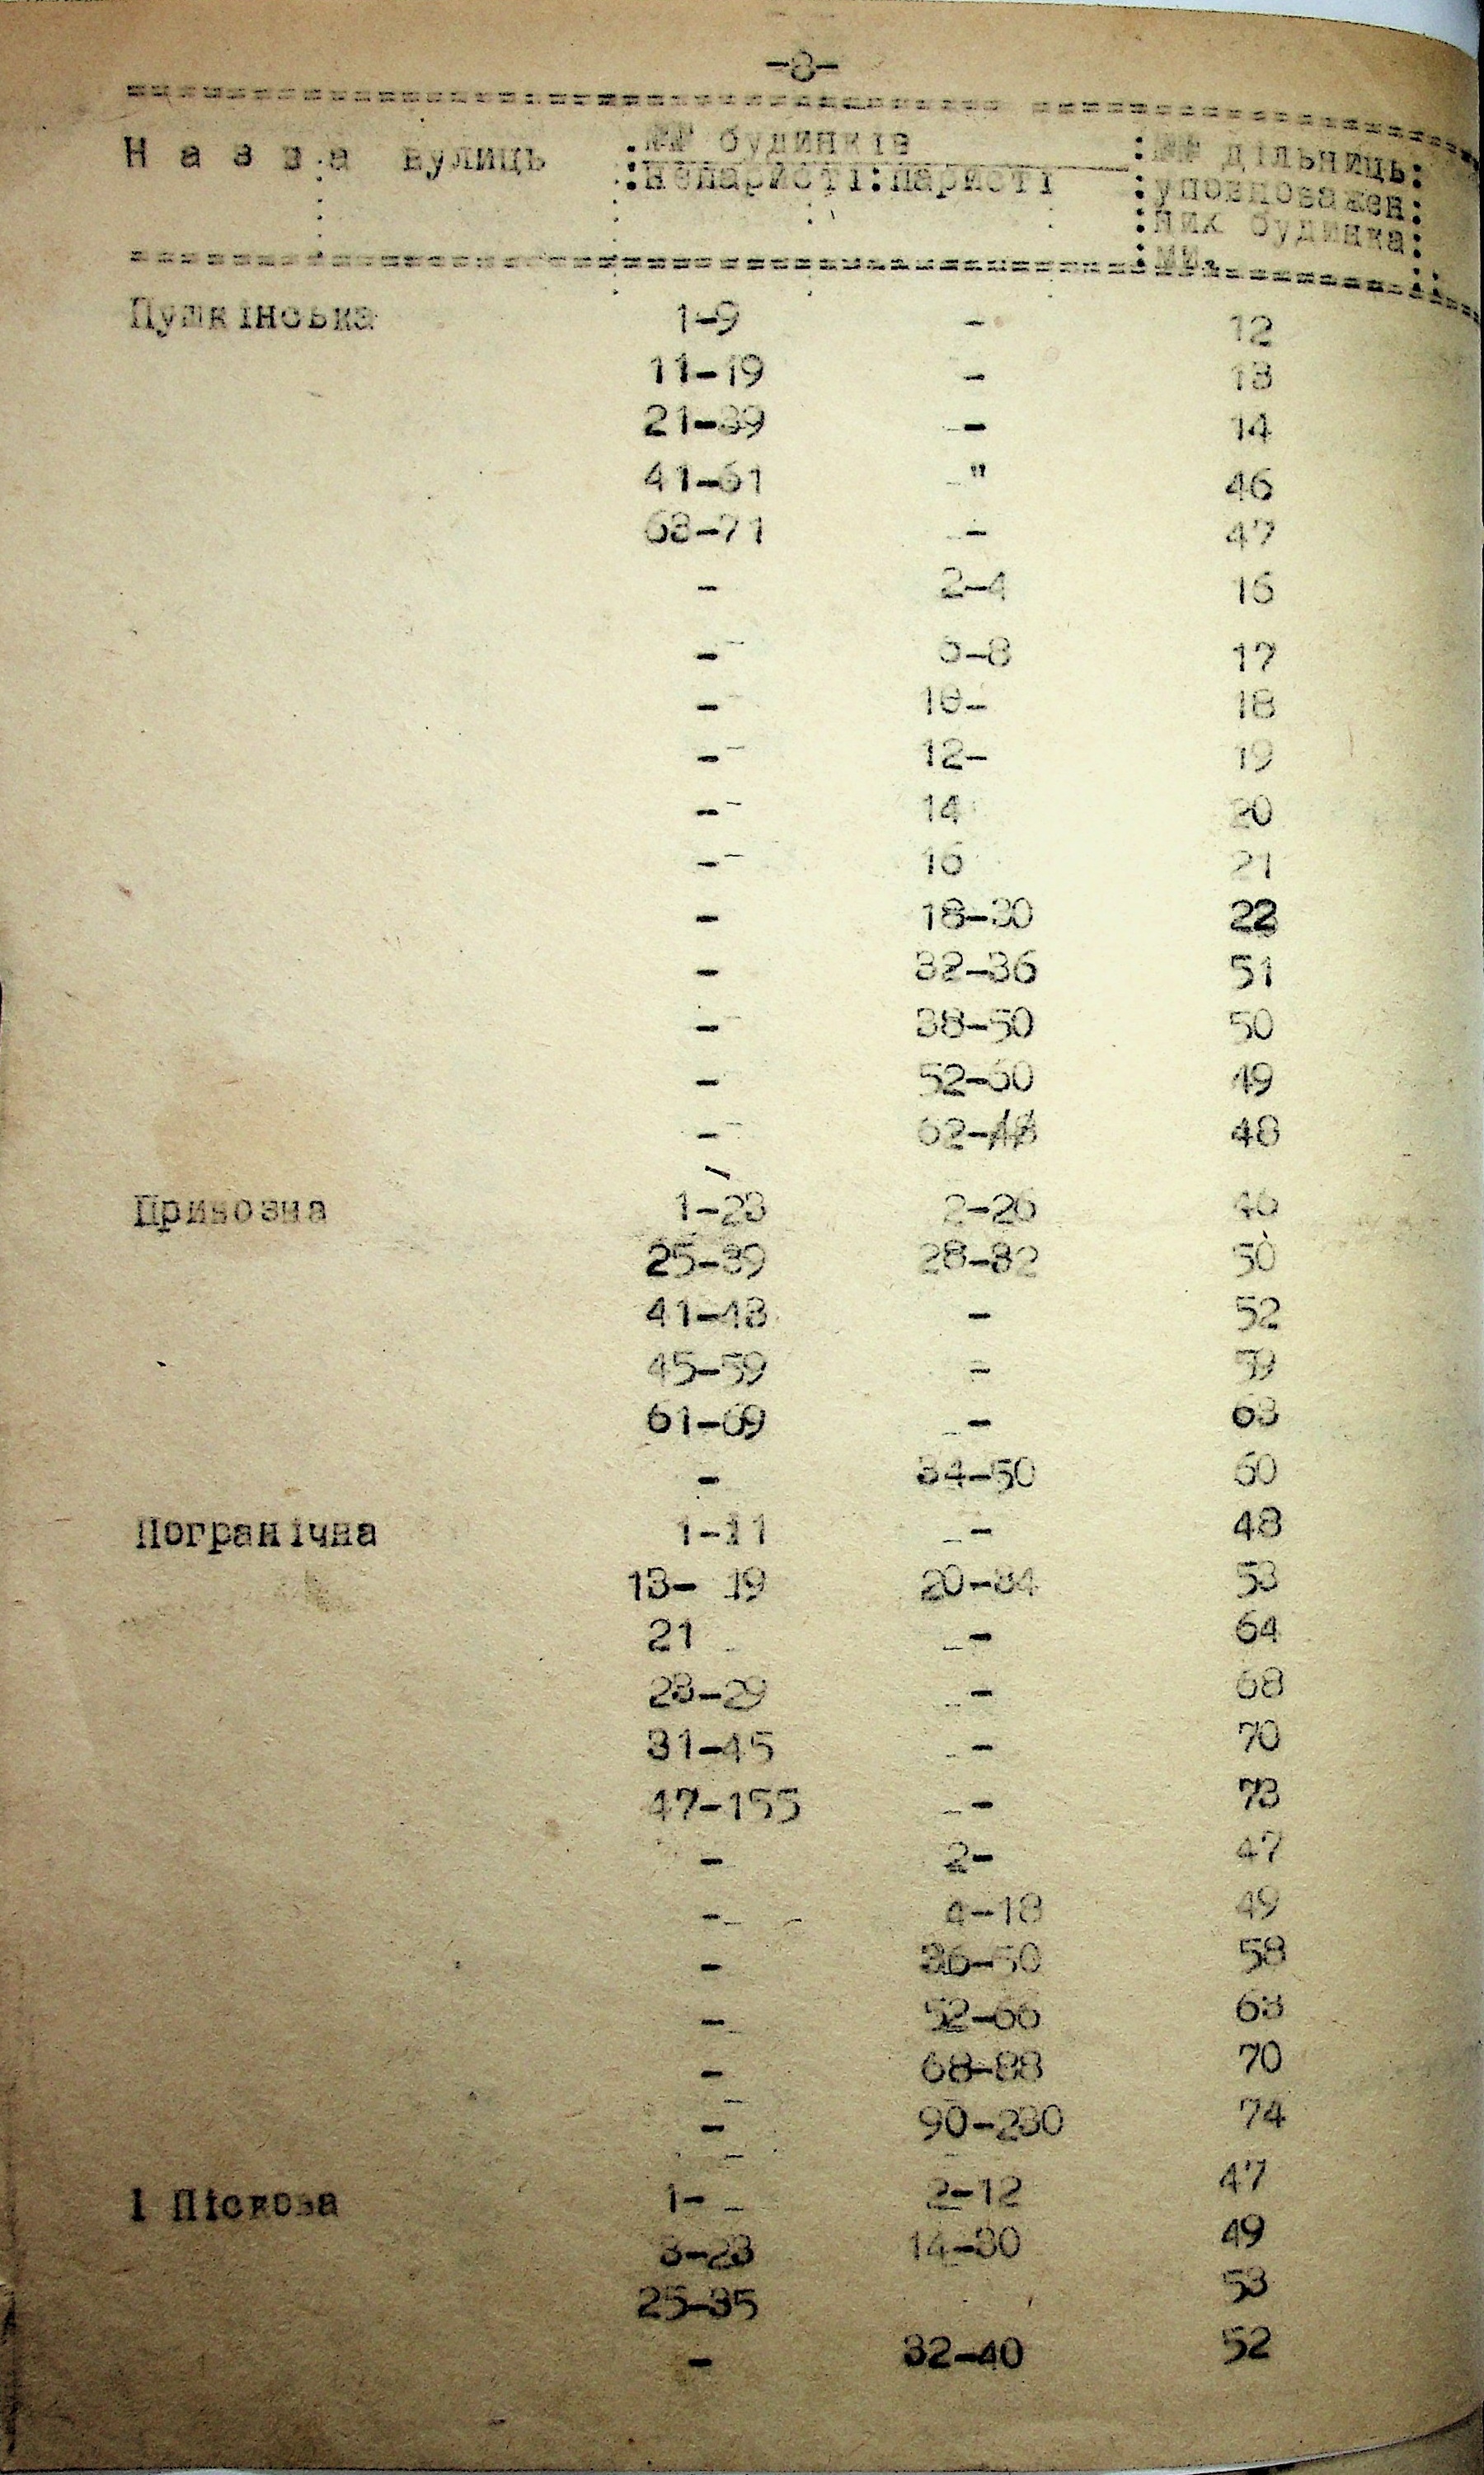 -8-
Назва вулиць :№№ будинків :№№ дільниць:
:непаристі:паристі :уповноважен:
:них будинка:
:ми.
Пушкінська 1-9 - 12
11-19 - 13
21-39 - 14
41-61 " 46
63-71 - 47
- 2-4 16
- 6-8 17
- 10- 18
- 12- 19
- 14 20
- 16 21
- 18-30 22
- 32-36 51
- 38-50 50
- 52-60 49
- 62- 48
Привозна 1-23 2-26 46
25-39 28-32 50
41-43 - 52
45-59 - 59
61-69 - 63
- 34-50 60
Погранічна 1-11 - 48
13- 19 20-34 53
21 - 64
23-29 - 68
31-45 - 70
47-155 - 73
- 2- 47
- 4-18 49
- 36-50 58
- 52-66 63
- 68-88 70
- 90-230 74
1 Піскова 1- 2-12 47
3-23 14-30 49
25-35 53
- 32-40 52